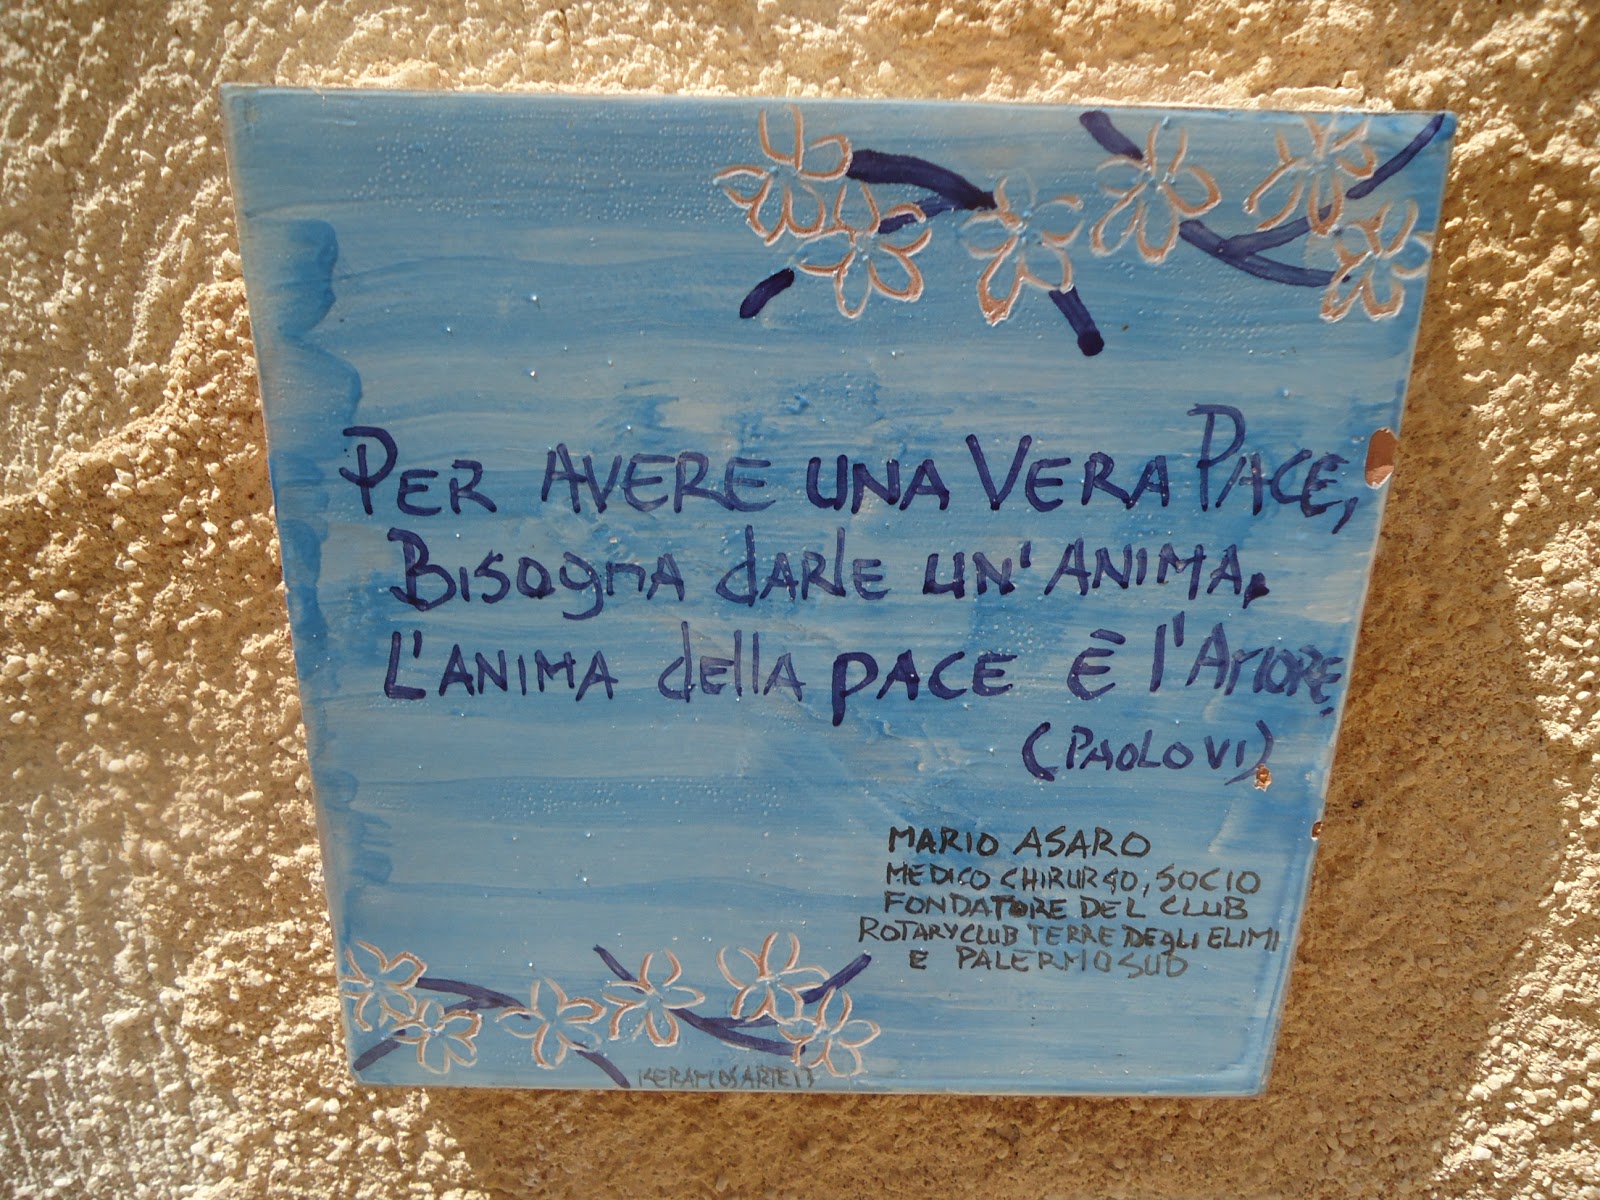 PER AVERE UNA VERA PACE,
BISOGNA DARLE UN'ANIMA.
L'ANIMA della PACE È l'AMORE.
(PAOLO VI)
MARIO ASARO
MEDICO CHIRURGO, SOCIO
FONDATORE DEL CLUB
ROTARY CLUB TERRE DEGLI ELIMI
E PALERMO SUD
KERAMOSARTE13